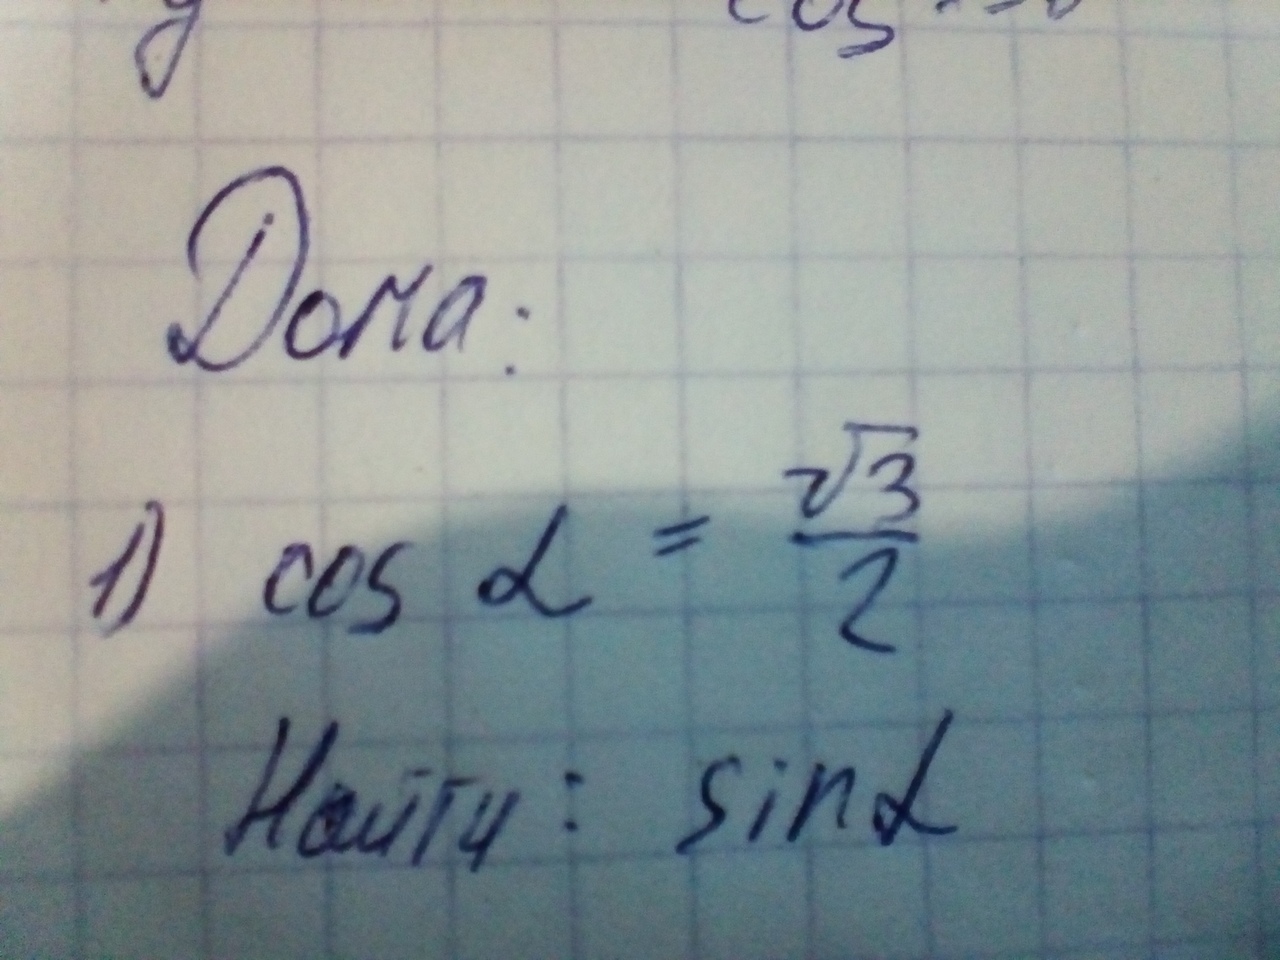 Дома:
1) cos α = √3/2
Найти: sin α